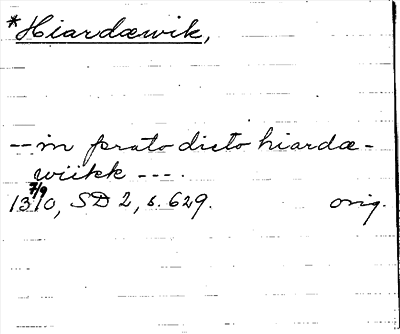 *Hiardæwik,
-- in prato dicto hiardæ-
wiikk ---.
13 7/9 10, SD 2, s. 629. orig.